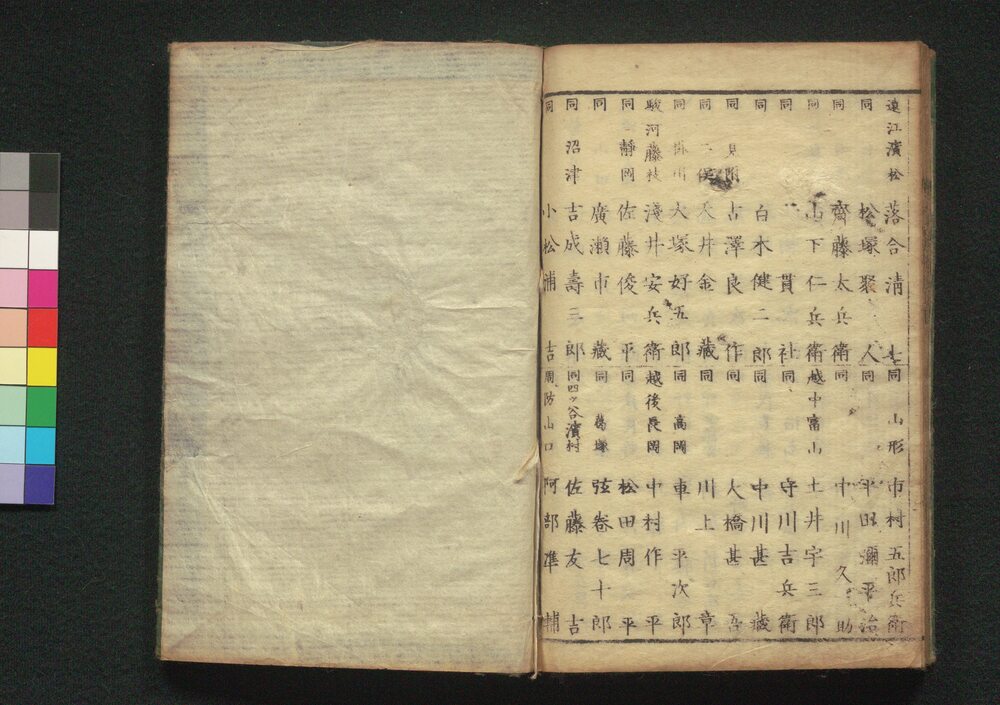 遠江濱松　落合清七
同　松塚聚人
同　齋藤太兵衞
同　山下仁兵衞
同　一貫社
同　白木健二郎
同　見附　古澤良作
同　二俣　天井金藏
同　掛川　大塚好五郎
駿河藤枝　淺井安兵衞
同　靜岡　佐藤俊平
同　廣瀬市藏
同　沼津　吉成壽三郎
同　小松浦吉
同　山形　市村五郎兵衞
同　平田彌平治
同　中川久助
越中富山　土井宇三郎
同　守川吉兵衞
同　中川甚藏
同　大橋甚吾
同　川上章
同　高岡　車平次郎
越後長岡　中村作平
同　松田周平
同　葛塚　弦卷七十郎
同四ッ谷濱村　佐藤友吉
周防山口　阿部準輔